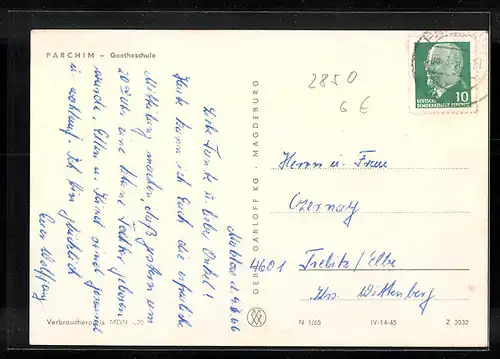 PARCHIM – Goetheschule
2850
6 €
10
DEUTSCHE
DEMOKRATISCHE REPUBLIK
4.2.66
Liebe Tante u. lieber Onkel!
Heute kann ich Euch die erfreuliche
Mitteilung machen, daß gestern um
20°° Uhr eine kleine Tochter geboren
wurde. Eltern u. Kind sind gesund
u. wohlauf. Ich bin glücklich
Euer Wolfgang
GEBR. GARLOFF KG · MAGDEBURG
Herrn u. Frau
Czernay
4601 Trebitz / Elbe
Krs. Wittenberg
Verbraucherpreis MDN -,20
N 1/65
IV-14-45
Z 3032